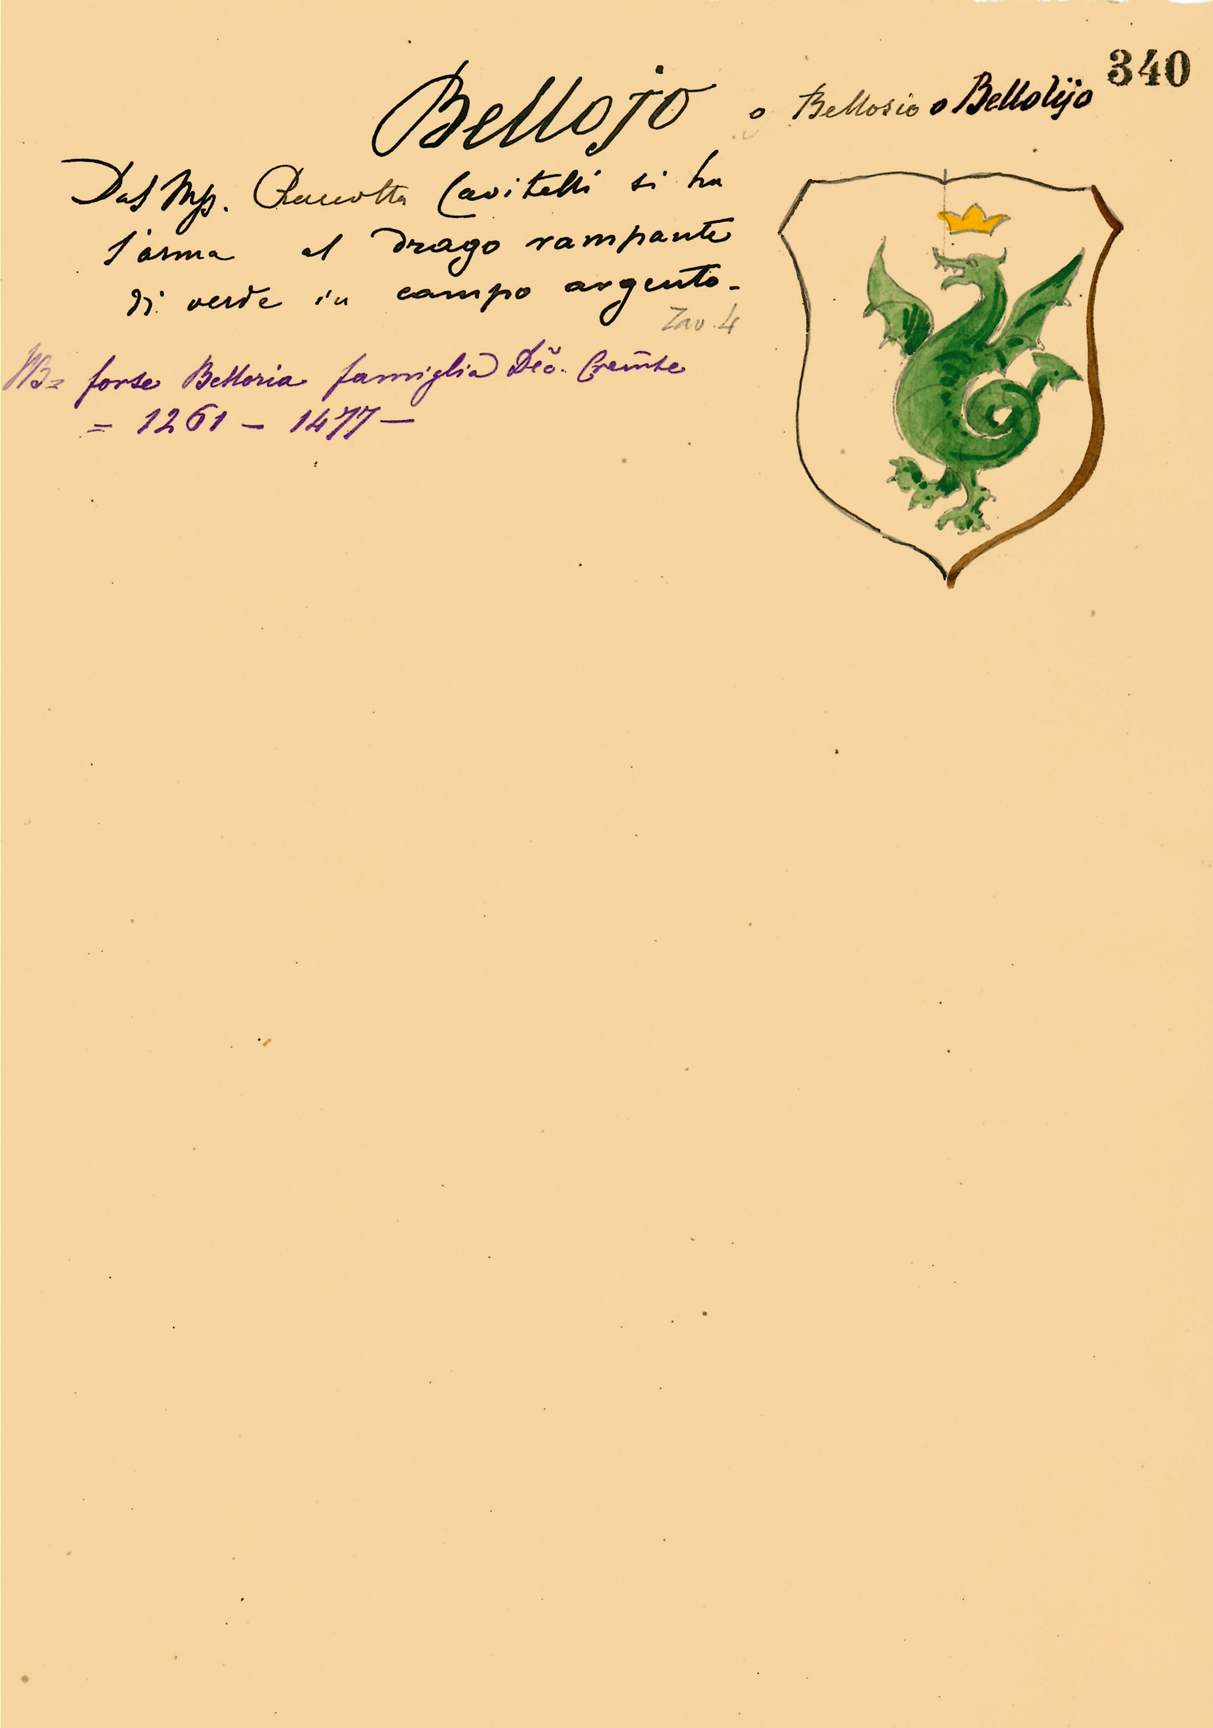 340
Bellojo o Bellosio o Bellolijo
Dal Mp. Raccolta Cavitelli si ha
l'arma al drago rampante
di verde in campo argento -
Tav. 4
NB = forse Belloria famiglia Dec̃. Crem̃se
= 1261 - 1477 -